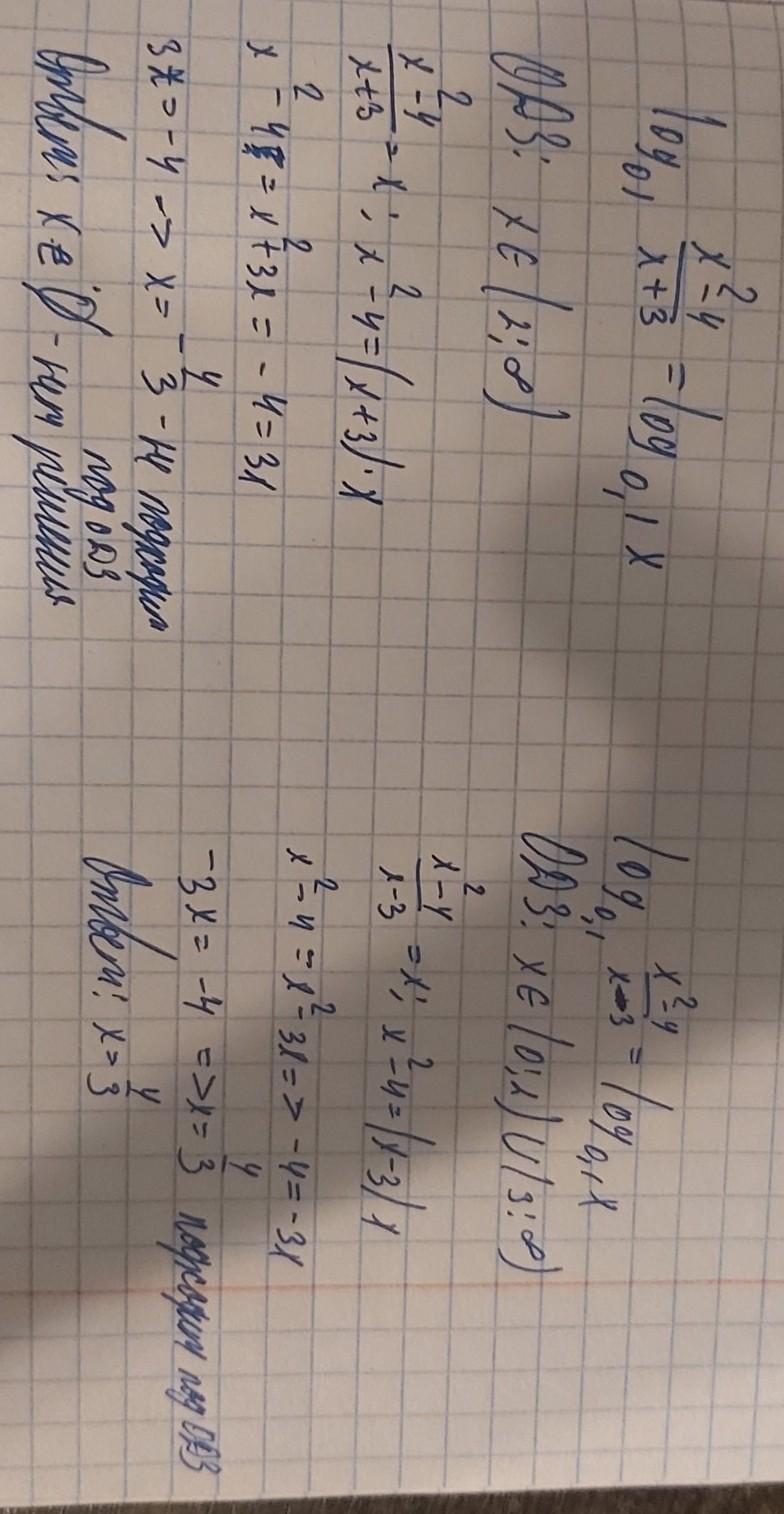 log₀,₁ (x²-4)/(x+3) = log₀,₁ x
ОДЗ: x ∈ (2; ∞)
(x²-4)/(x+3) = x; x²-4 = (x+3)·x
x²-4 = x²+3x = -4=3x
3x = -4 -> x = -4/3 - не подходит
под ОДЗ
Ответ: x ∈ ∅ - нет решения
log₀,₁ (x²-4)/(x-3) = log₀,₁ x
ОДЗ: x ∈ (0; 2) ∪ (3; ∞)
(x²-4)/(x-3) = x; x²-4 = (x-3) x
x²-4 = x²-3x => -4 = -3x
-3x = -4 => x = 4/3 подходит под ОДЗ
Ответ: x = 4/3